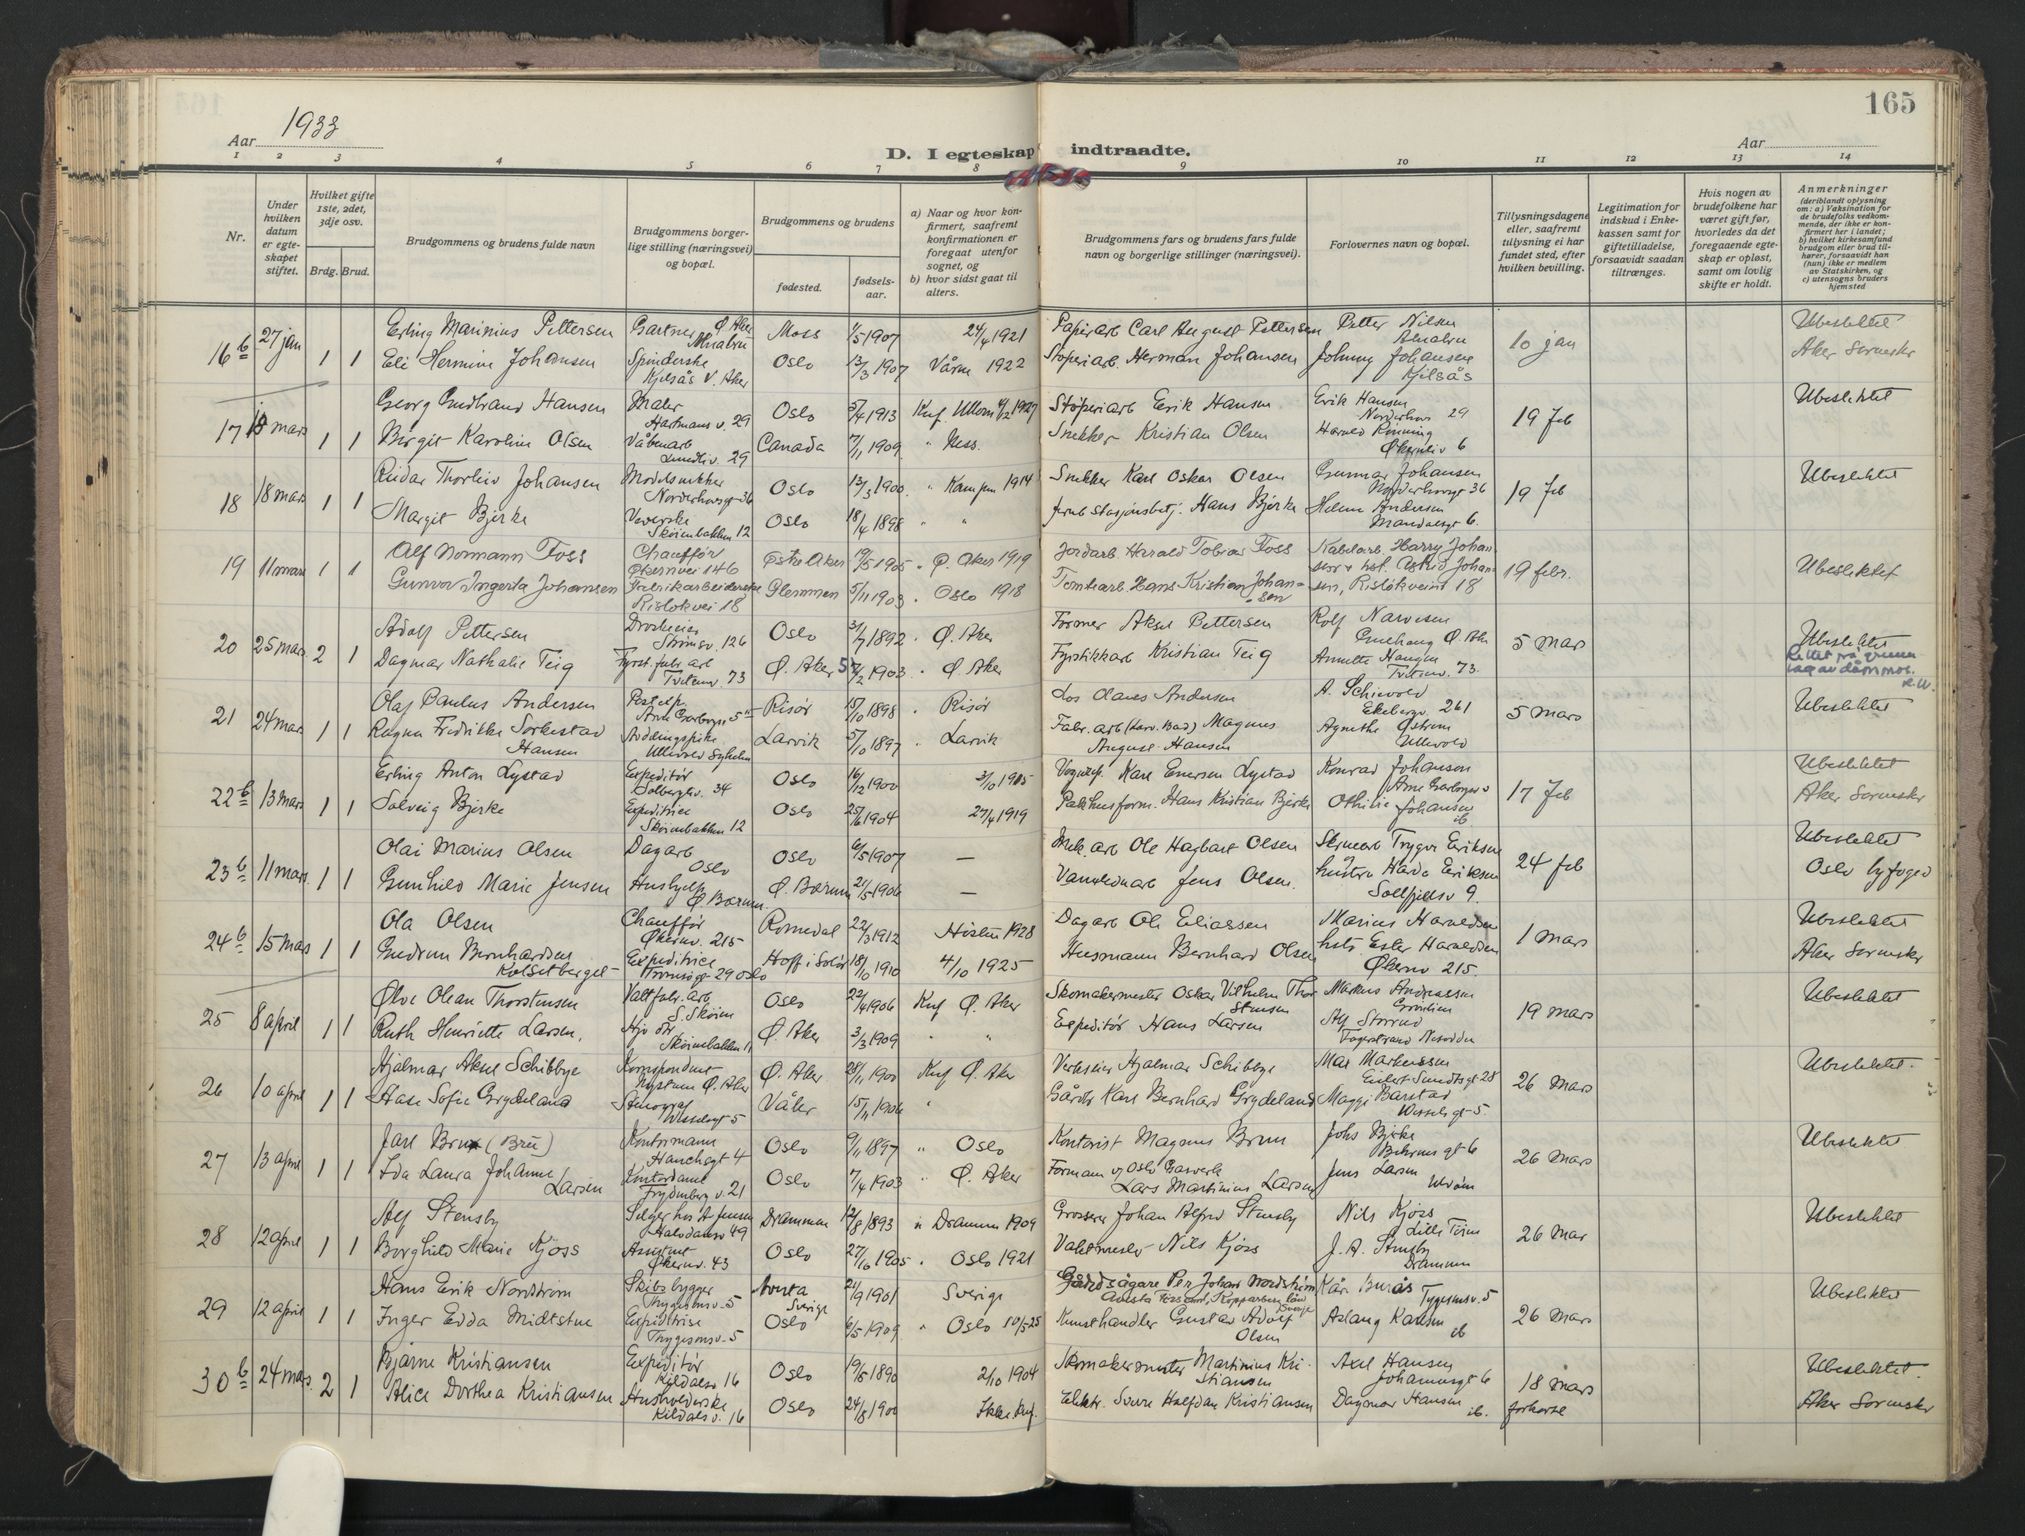 165
Aar 1933
Aar
D. I egteskap indtraadte.
1 2 3 4 5 6 7 8 9 10 11 12 13 14
Nr.
Under hvilken datum er egteskapet stiftet.
Hvilket gifte 1ste, 2det, 3dje osv.
Brdg. Brud.
Brudgommens og brudens fulde navn
Brudgommens borgerlige stilling (næringsvei) og bopæl.
Brudgommens og brudens
fødested.
fødselsaar.
a) Naar og hvor konfirmert, saafremt konfirmationen er foregaat utenfor sognet, og
b) hvor sidst gaat til alters.
Brudgommens fars og brudens fars fulde navn og borgerlige stillinger (næringsvei).
Forlovernes navn og bopæl.
Tillysningsdagene eller, saafremt tillysning ei har fundet sted, efter hvilken bevilling.
Legitimation for indskud i Enkekassen samt for giftetilladelse, forsaavidt saadan tiltrænges.
Hvis nogen av brudefolkene har været gift før, hvorledes da det foregaaende egteskap er opløst, samt om lovlig skifte er holdt.
Anmerkninger
(deriblandt oplysning om: a) Vaksination for de brudefolks vedkommende, der ikke er konfirmert her i landet; b) hvilket kirkesamfund brudgom eller brud tilhører, forsaavidt han (hun) ikke er medlem av Statskirken, og c) utensogns bruders hjemsted
16 b 27 jan 1 1
Erling Marinius Pettersen Gartner Ø. Aker Alnabru Moss 1/5 1907 24/4 1921 Papirarb Carl August Pettersen Petter Nilsen Alnabru 10 jan Ubeslektet
Eli Hermine Johansen Spinderske Kjelsås v. Aker Oslo 13/3 1907 Våren 1922 Støperiarb. Herman Johansen Johnny Johansen Kjelsås Aker Sorenskr
17 mars 1 1
Georg Gudbrand Hansen Maler Hartmans v. 29 Oslo 5/4 1913 Erik Hansen 29 19 feb Ubeslektet
Støperiarb Erik Hansen
Birgit Karoline Olsen Våbenarb 29 Canada 7/11 1909 " Ness. Snekker Kristian Olsen Harald Rønning Økernv 6
18 18 mars 1 1
Reidar Thorleiv Johansen Modelsnekker Norderhovsgt 36 Oslo 13/3 1900 " Kampen 1914 Snekker Karl Oskar Olsen Gunnar Johansen Norderhovsgt 36 19 feb Ubeslektet
Margit Bjerke Veverske Skøienbakken 12 Oslo 18/4 1898 " " Jernb Stasjonsbetj. Hans Bjerke Helene Andersen Mandalsgt 6.
19 11 mars 1 1
Alf Normann Foss Chauffør Økernvei 146 Østre Aker 19/5 1905 " Ø. Aker 1919 Jordarb Harald Tobias Foss Kabelarb. Harry Johansen + hst. Astrid Johansen, Risløkveien 18 19 febr. Ubeslektet
Gunvor Ingerda Johansen Fabrikarbeiderske Risløkvei 18 Glemmen 5/11 1903 " Oslo 1918 Tomtearb. Hans Kristian Johansen
20 25 mars 2 1
Adolf Pettersen Drosjeeier Strømsv. 126 Oslo 3/7 1892 " Ø. Aker Former Aksel Pettersen Rolf Narvesen Ø. Aker 5 mars Ubeslektet
Dagmar Nathalie Teig Fyrst. fabr. arb Tvetenv. 73 Ø. Aker 5/2 1903 " Ø. Aker Fyrstikkarb Kristian Teig Annette Haugen Tvetenv. 73.
21 24 mar 1 1
Olaf Paulus Andersen Postexp Arne Garborgsv 5 Risør 15/10 1898 " Risør Los Olaves Andersen A. Schievold Ekebergv. 261 5 mars Ubeslektet
Ragna Fredrikke Sørkestad Hansen Avdelingspike Ullevold Sykehu Larvik 5/10 1897 " Larvik Fabr. arb (Larv. Bad) Magnus August Hansen Agnethe Østrem Ullevold
22 b 13 mars 1 1
Erling Anton Lystad Expeditør Solbergv. 34 Oslo 16/12 1900 3/10 1915 Karl Emersen Lystad Konrad Johanson Arne Garborgsv 17 feb Ubeslektet
Solveig Bjerke Expeditrice Skøienbakken 12 Oslo 25/6 1904 27/4 1919 Pakhusform. Hans Kristian Bjerke Othilie Johansen ib Aker Sorenskr
23 b 11 mars. 1 1
Olai Marius Olsen Dagarb Oslo Oslo 6/5 1907 — Mek. arb Ole Hagbart Olsen Trygve Eriksen 24 feb Ubeslektet
Gunhild Marie Jensen Hushjelp Ø. Bærum. Ø. Bærum 21/5 1906 — Jens Olsen. hustru Harda Eriksen Solfjeldsv 9. Oslo byfoged
24 b 15 mars 1 1
Ola Olsen Chauffør Økernv. 215 Romedal 22/3 1912 Høsten 1928 Dagarb Ole Eliassen Marius Haraldsen 1 mars Ubeslektet
Gudrun Bernhardsen Kolsetberget Expeditrice Tromsøgt 29 Oslo Hoff i Solør 18/10 1910 4/10 1925 Husmann Bernhard Olsen hst. Ester Haraldsen Økernv 215. Aker Sorenskr
25 8 april 1 1
Ølve Olean Thorstensen Valsfabr. arb S. Skøien Oslo 22/4 1906 Knf Ø. Aker Skomakermester Oskar Vilhelm Thorstensen Markus Andreassen 19 mars Ubeslektet
Ruth Henriette Larsen, Skøienbakken 11 Ø. Aker 3/3 1909 " " Expeditør Hans Larsen Alf Storrud Fagerstrand Nesodden
26 10 april 1 1
Hjalmar Aksel Schibbye Korrespondent Ø. Aker Ø. Aker 28/11 1900 Knf Ø. Aker Verkseier Hjalmar Schibbye Max Markussen Eilert Sundtsgt 28 26 mars Ubeslektet.
Aase Sofie Grydeland Stenograf Wesselsgt 5 Våler 15/11 1906 " Gårdb Karl Bernhard Grydeland Maggi Barstad Wesselsgt 5.
27 13 april 1 1
Jarl Brun (Bru) Kontormann Hauchsgt 4 Oslo 9/11 1897 " Oslo Kontorist Magnus Brun Johs Bjerke Behrensgt 6 26 mars Ubeslektet
Ida Laura Johanne Larsen Kontordame Frydenberg v. 21 Oslo 7/4 1903 " Ø. Aker Formann v/ Oslo Gasverk Lars Martinius Larsen Jens Larsen
28 12 april 1 1
Alf Stensby Selger hos A. Jensen 49 Drammen 12/8 1893 " Drammen 1909 Grosserer Johan Alfred Stensby Nils Kjøss Lille Tøien 26 mar Ubeslektet
Borghild Marie Kjøss Assistent Økernv. 43 Oslo 27/10 1905 " Oslo 1921 Vaktmester Nils Kjøss J. A. Stensby Drammen
29 12 april 1 1
Hans Erik Nordstrøm Skibsbygger Thygesensv. 5 Avesta Sverige 24/9 1901 Sverige Gårdsägare Per Johan Nordström Avesta Kopparbergs län Sverige Kåre Burås Tygesensv. 5 26 mars Ubeslektet
Inger Edda Midtstue Expeditrise Thygesonsv. 5 Oslo 6/5 1909 " Oslo 10/5 25 Kunsthandler Gustav Adolf Olsen Aslaug Hansen ib
30 b 24 mars. 2 1
Bjarne Kristiansen Expeditør Kildalsv 16 Oslo 19/5 1890 2/10 1904 Skomakermester Martinius Kristiansen Axel Hansen Johannesgt 6 18 mars forkortet Ubeslektet.
Alice Dorthea Kristiansen Husholderske Kildalsv. 16 Oslo 24/8 1900 Ikke knf. Elektr. Sverre Halfdan Kristiansen Dagmar Hansen ib. Aker Sorenskr